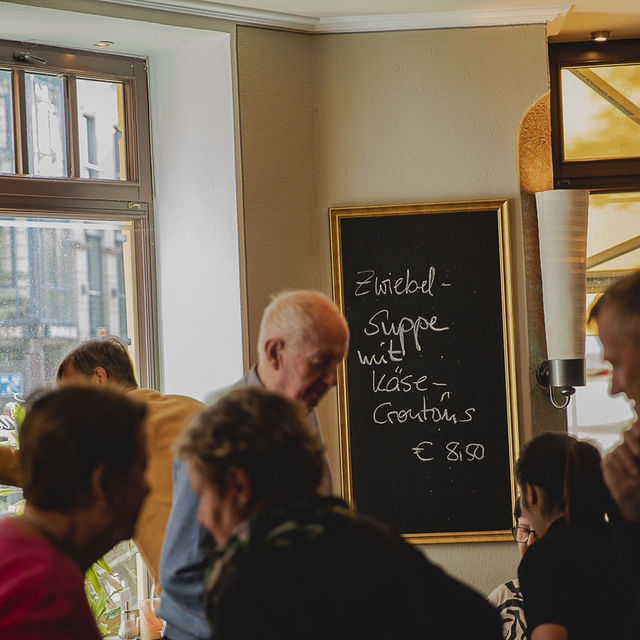 Zwiebel-
Suppe
mit
Käse-
Croutons
€ 8,50